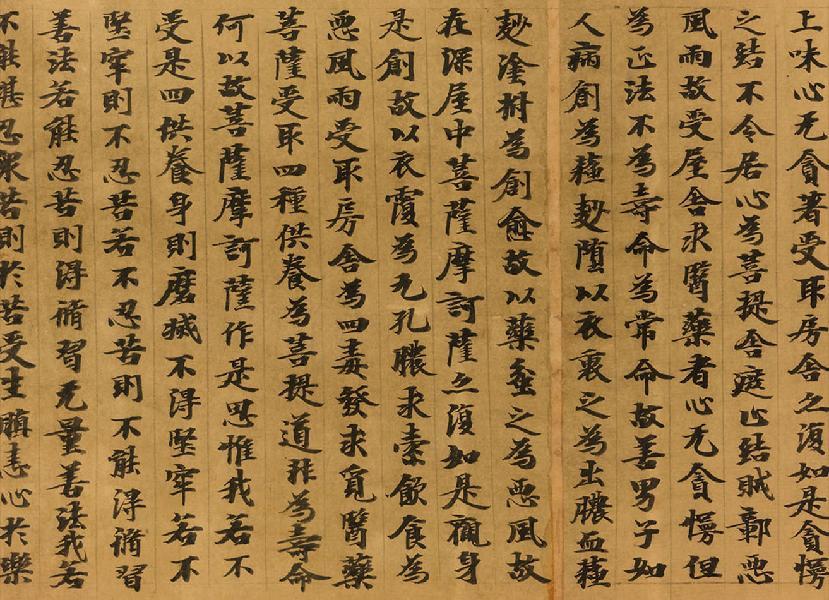 上味心无貪著受取房舍亦復如是貪慢
之結不令居心為菩提舍遮止結賊鄣惡
風雨故受屋舍求醫藥者心无貪慢但
為正法不為壽命為常命故善男子如
人病創為蘓麨墮以衣裹之為出膿血蘓
麨塗拊為創愈故以藥坌之為惡風故
在深屋中菩薩摩訶薩亦復如是觀身
是創故以衣覆為九孔膿求索飲食為
惡風雨受取房舍為四毒發求覓醫藥
菩薩受取四種供養為菩提道非為壽命
何以故菩薩摩訶薩作是思惟我若不
受是四供養身則磨滅不得堅牢若不
堅牢則不忍苦若不忍苦則不能得脩習
善法若能忍苦則得脩習无量善法我若
不能堪忍眾苦則於苦受生瞋恚心於樂